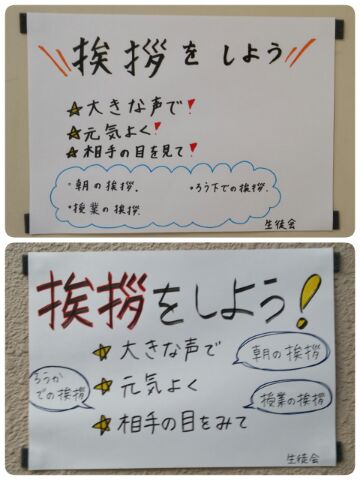 挨拶をしよう
☆大きな声で!
☆元気よく!
☆相手の目を見て!
・朝の挨拶.
・ろう下での挨拶.
・授業の挨拶
生徒会
挨拶をしよう!
☆大きな声で
朝の挨拶
☆元気よく
ろうかでの挨拶
授業の挨拶
☆相手の目をみて
生徒会